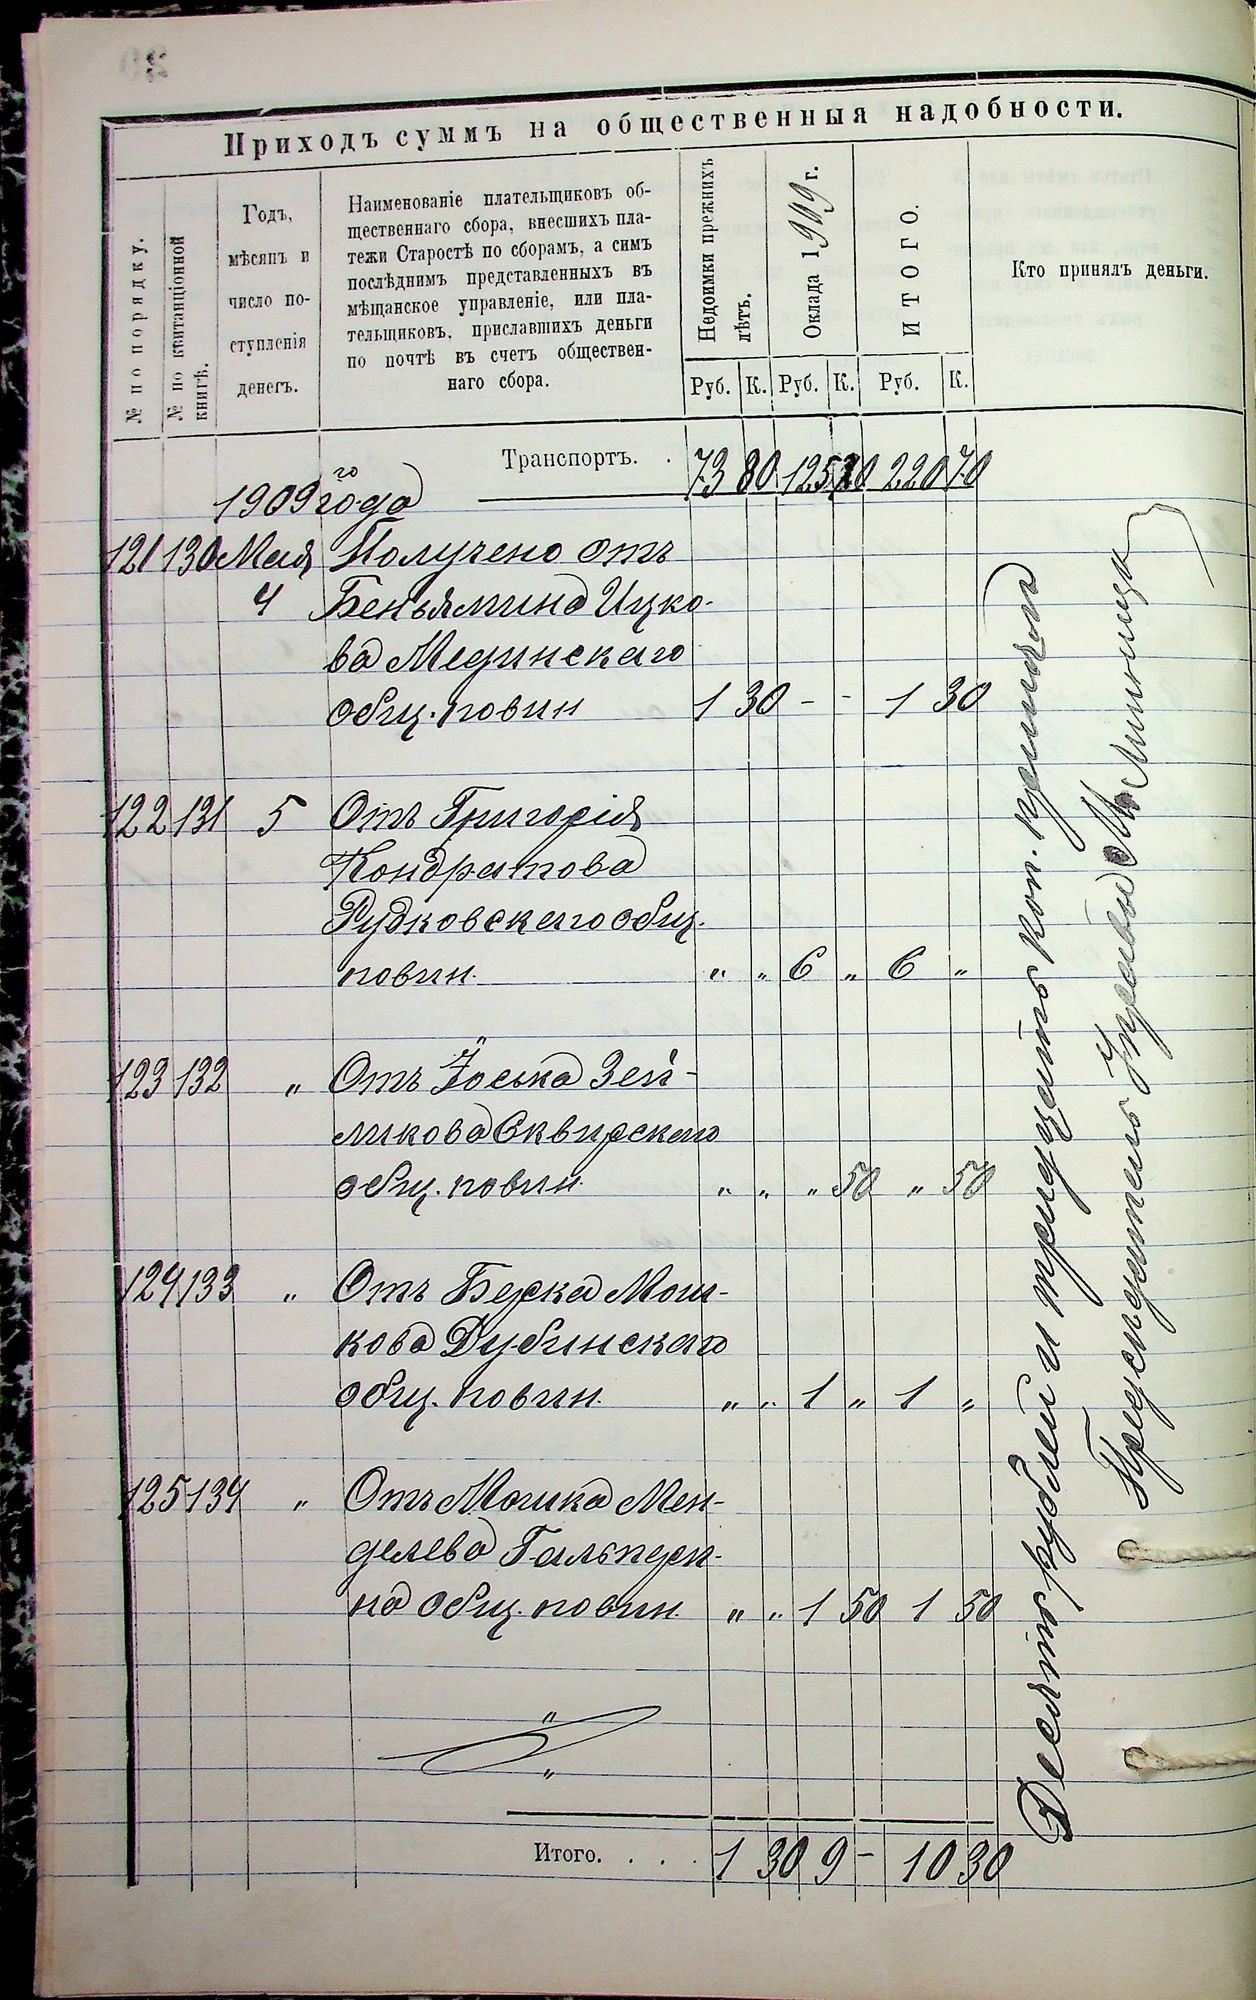 Приходъ суммъ на общественныя надобности.
№ по порядку.
№ по квитанціонной
книгѣ.
Годъ,
мѣсяцъ и
число по-
ступленія
денегъ.
Наименованіе плательщиковъ об-
щественнаго сбора, внесшихъ пла-
тежи Старостѣ по сборамъ, а симъ
послѣднимъ представленныхъ въ
мѣщанское управленіе, или пла-
тельщиковъ, приславшихъ деньги
по почтѣ въ счетъ обществен-
наго сбора.
Недоимки прежнихъ
лѣтъ.
Оклада 1909 г.
ИТОГО.
Кто принялъ деньги.
Руб. К. Руб. К. Руб. К.
Транспортъ. . 73 80 125 220 70
1909го года
121 130 Мая Получено отъ
4 Беньямина Ицко-
ва Мединскаго
общ. повин 1 30 - - 1 30
122 131 5 Отъ Григорія
Кондратова
Рудковскаго общ.
повин. " " 6 " 6 "
123 132 " Отъ Іоська Зей-
ликова Сквирскаго
общ. повин. " " " 50 " 50
124 133 " Отъ Берка Мош-
кова Дубинскаго
общ. повин. " " 1 " 1 "
125 134 " Отъ Мошка Мен-
делева Гальпери-
на общ. повин. " " 1 50 1 50
"
"
Итого. . . . 1 30 9 - 10 30
Десять рублей и тридцать коп. принялъ
Предсѣдатель Управы